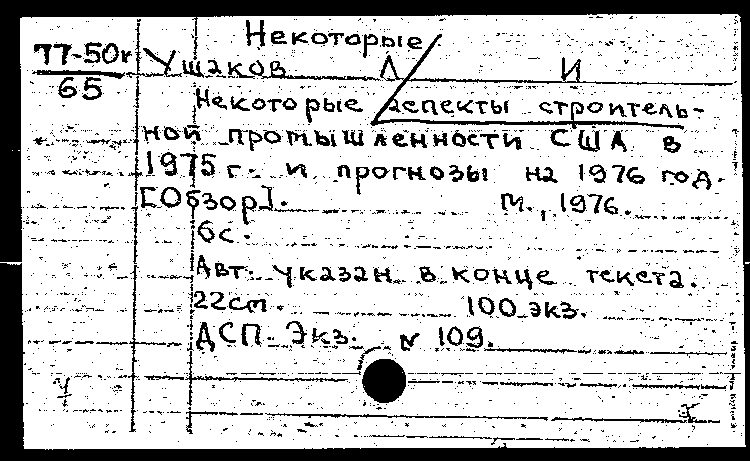 Некоторые
77-50г
65
Ушаков Л И
Некоторые аспекты строитель-
ной промышленности США в
1975 г. и прогнозы на 1976 год.
[Обзор]. М., 1976.
6с.
Авт. указан в конце текста.
22см. 100 экз.
ДСП. Экз. № 109.